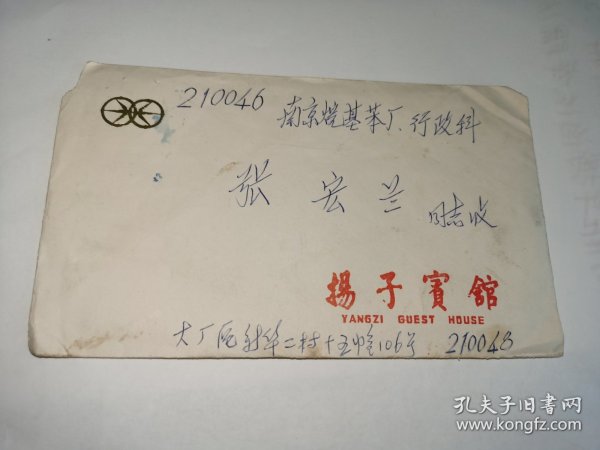 210046
南京烷基苯厂行政科
张宏兰
同志收
揚子賓館
YANGZI GUEST HOUSE
大厂区新华二村十五幢106号 210048
孔夫子旧书网
www.kongfz.com